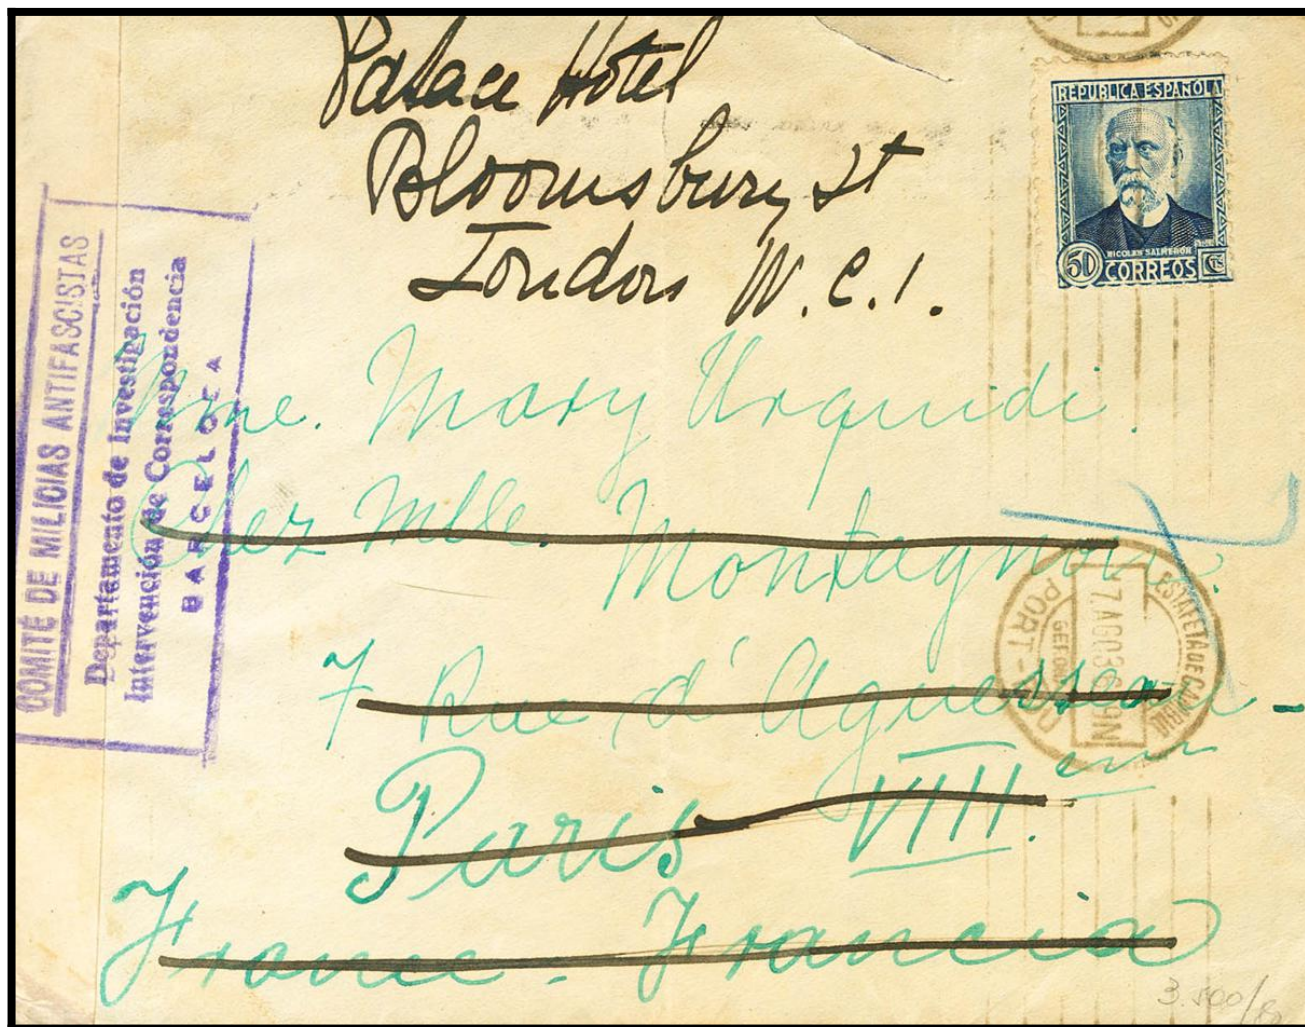 Palace Hotel
Bloomsbury St
London W.C.1.
REPUBLICA ESPAÑOLA
NICOLAS SALMERON
50 CORREOS CTS
COMITÉ DE MILICIAS ANTIFASCISTAS
Departamento de Investigación
Intervención de Correspondencia
BARCELONA
Mme. Mary Urquidi.
Chez Mlle. Montagnon.
7 Rue d'Aguesseau -
Paris VIII.
France. Francia
ESTAFETA DE CAMBIO
7.AGO.36
PORT-BOU
GERONA
3.500/